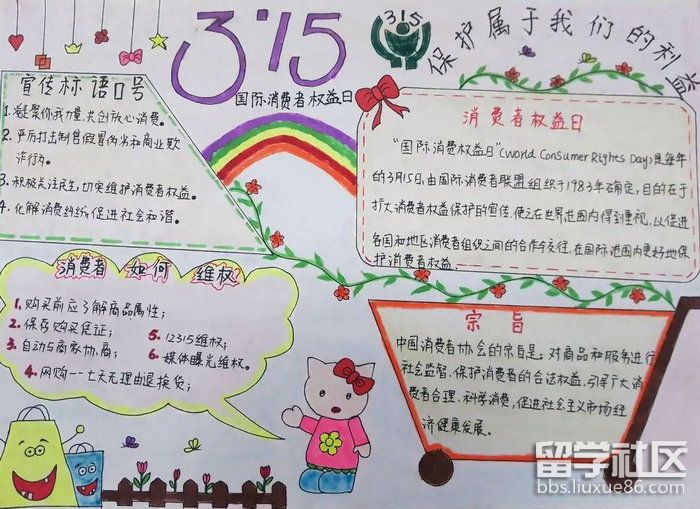 3·15
国际消费者权益日
315
保护属于我们的利益
宣传标语口号
1.凝聚你我力量,共创放心消费。
2.严厉打击制售假冒伪劣和商业欺
诈行为。
3.积极关注民生,切实维护消费者权益。
4.化解消费纠纷,促进社会和谐。
消费者权益日
“国际消费权益日”(World Consumer Rights Day)是每年
的3月15日,由国际消费者联盟组织于1983年确定,目的在于
扩大消费者权益保护的宣传,使之在世界范围内得到重视,以促进
各国和地区消费者组织之间的合作与交往,在国际范围内更好地保
护消费者权益.
消费者 如何 维权?
1.购买前应了解商品属性;
2.保存购买凭证;
3.自动与商家协商;
4.网购——七天无理由退换货;
5.12315维权;
6.媒体曝光维权。
宗旨
中国消费者协会的宗旨是:对商品和服务进行
社会监督,保护消费者的合法权益,引导广大消
费者合理、科学消费,促进社会主义市场经
济健康发展。
留学社区
bbs.liuxue86.com